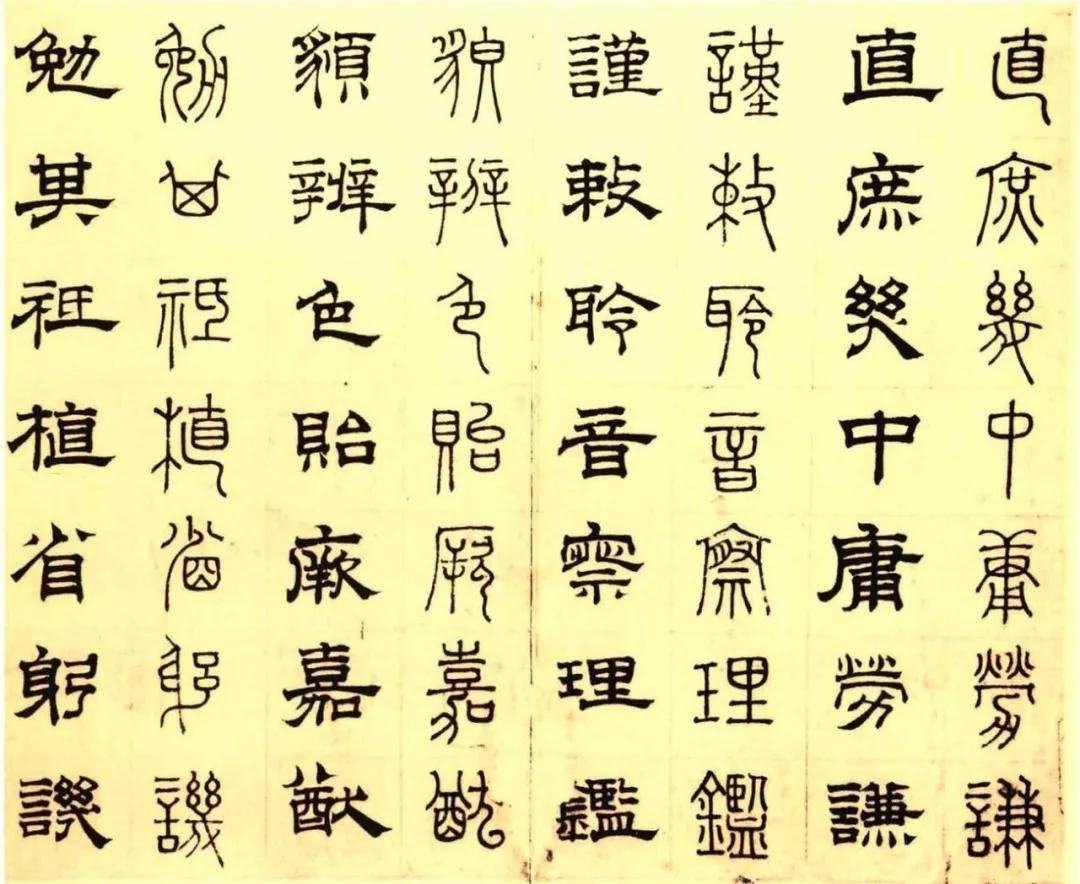 直庶幾中庸勞謙
直庶幾中庸勞謙
謹敕聆音察理鑑
謹敕聆音察理鑑
貌辨色貽厥嘉猷
貌辨色貽厥嘉猷
勉其祗植省躬譏
勉其祗植省躬譏